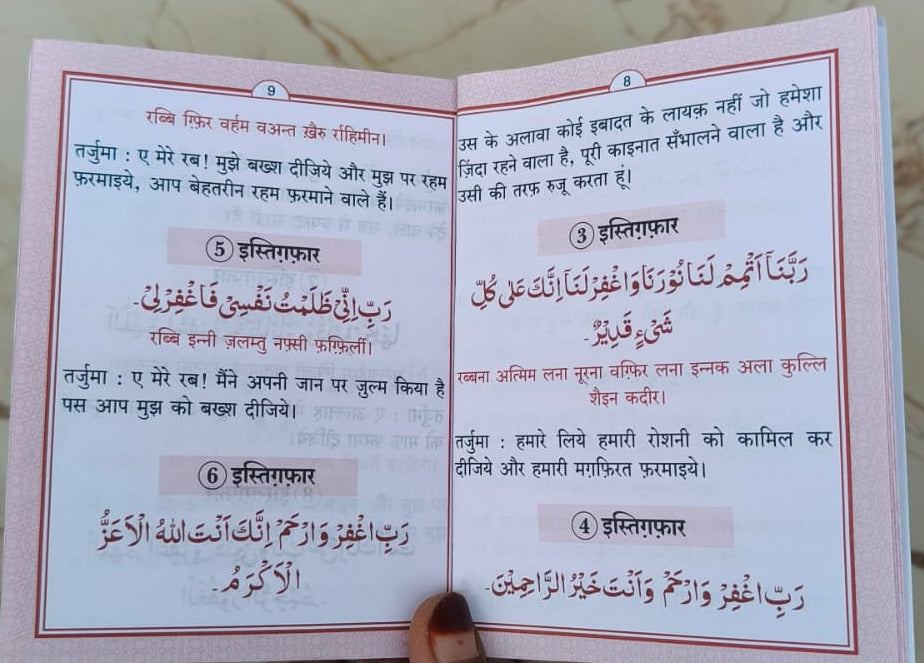 8
उस के अलावा कोई इबादत के लायक़ नहीं जो हमेशा
ज़िंदा रहने वाला है, पूरी काइनात सँभालने वाला है और
उसी की तरफ़ रुजू करता हूं।
③ इस्तिग़फ़ार
رَبَّنَا اَتْمِمْ لَنَا نُوْرَنَا وَاغْفِرْ لَنَا اِنَّكَ عَلٰى كُلِّ
شَىْءٍ قَدِيْرٌ۔
रब्बना अत्मिम लना नूरना वग़्फ़िर लना इन्नक अला कुल्लि
शैइन कदीर।
तर्जुमा : हमारे लिये हमारी रोशनी को कामिल कर
दीजिये और हमारी मग़फ़िरत फ़रमाइये।
④ इस्तिग़फ़ार
رَبِّ اغْفِرْ وَارْحَمْ وَاَنْتَ خَيْرُ الرَّاحِمِيْنَ۔
9
रब्बि ग़्फ़िर वर्हम वअन्त ख़ैरु र्राहिमीन।
तर्जुमा : ए मेरे रब! मुझे बख्श दीजिये और मुझ पर रहम
फ़रमाइये, आप बेहतरीन रहम फ़रमाने वाले हैं।
⑤ इस्तिग़फ़ार
رَبِّ اِنِّىْ ظَلَمْتُ نَفْسِىْ فَاغْفِرْ لِىْ۔
रब्बि इन्नी ज़लम्तु नफ़्सी फ़ग़्फ़िर्ली।
तर्जुमा : ए मेरे रब! मैंने अपनी जान पर ज़ुल्म किया है
पस आप मुझ को बख्श दीजिये।
⑥ इस्तिग़फ़ार
رَبِّ اغْفِرْ وَارْحَمْ اِنَّكَ اَنْتَ اللهُ الْاَعَزُّ
الْاَكْرَمُ۔